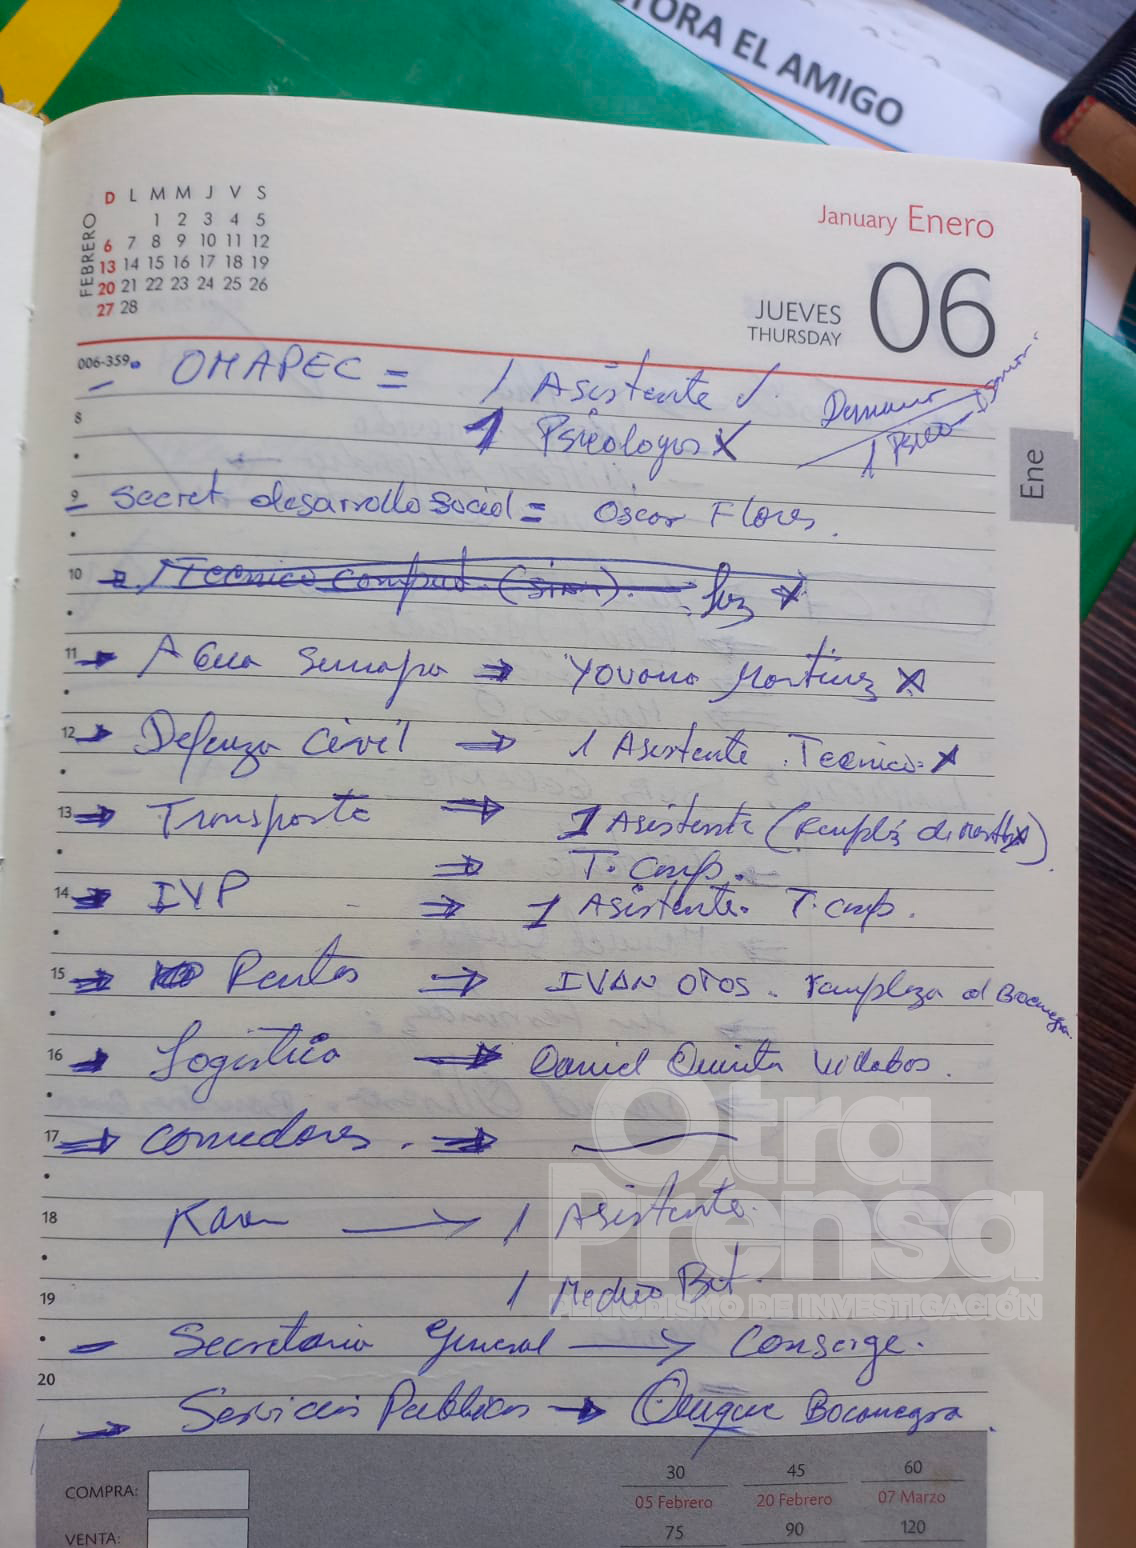 TORA EL AMIGO
D L M M J V S
FEBRERO
1 2 3 4 5
6 7 8 9 10 11 12
13 14 15 16 17 18 19
20 21 22 23 24 25 26
27 28
January Enero
JUEVES
THURSDAY
06
Ene
006-359
- OMAPEC = 1 Asistente ✓.
1 Psicologos X
1 Psico
8
9 - Secret desarrollo social = Oscar Flores.
10 Tecnico comput. X
11 → Agua Semapa ⇒ Yovana Martinez X
12 → Defenza Civil ⇒ 1 Asistente Tecnico X
13 ⇒ Transporte ⇒ 1 Asistente (
⇒ T. Comp.
14 ⇒ IVP ⇒ 1 Asistente. T. comp.
15 ⇒ Rentas ⇒ IVAN OTOS. rempleza al Bocanegra
16 → Logistica → Daniel Quinta Villalobos.
17 ⇒ Comedores. ⇒
18 Karen → 1 Asistente.
19 1 Medico Bet.
- Secretaria General → Conserge.
20
→ Servicios Publicos → Quique Bocanegra.
Otra
Prensa
PERIODISMO DE INVESTIGACIÓN
COMPRA:
VENTA:
30 45 60
05 Febrero 20 Febrero 07 Marzo
75 90 120